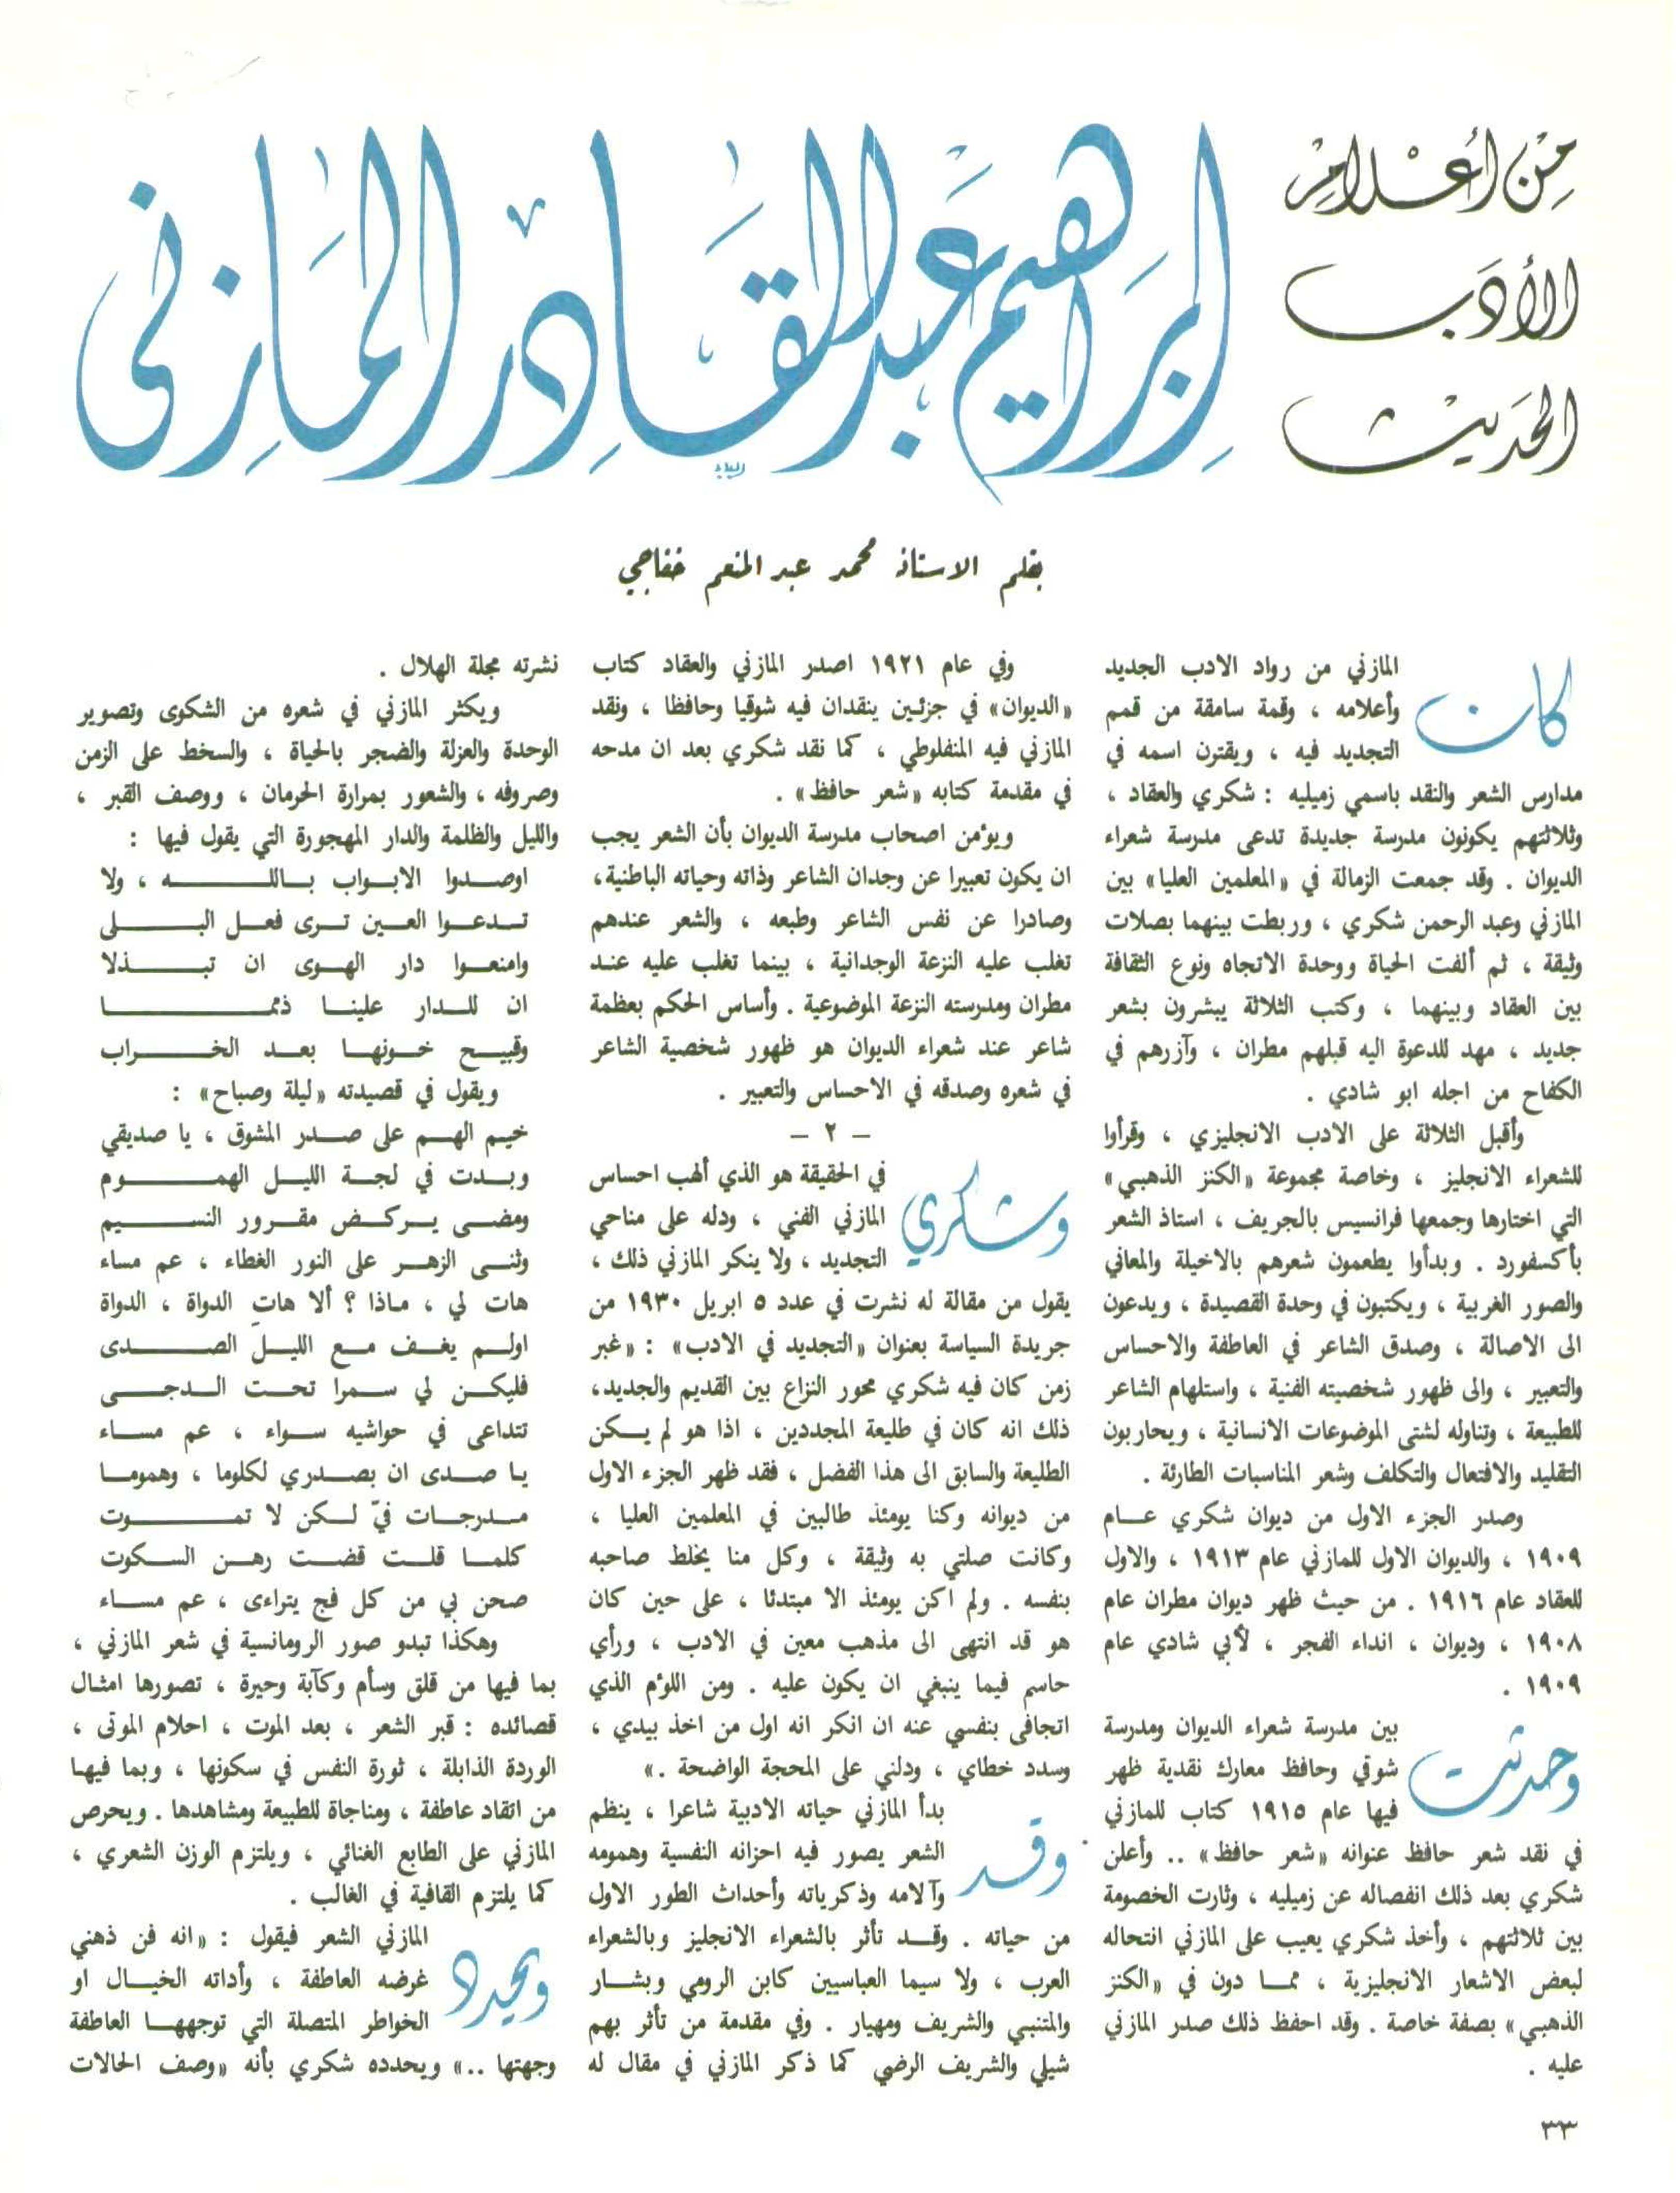 من أعلام
الأدب
الحديث
ابراهيم عبد القادر المازني
بقلم الاستاذ محمد عبد المنعم خفاجي
كان
المازني من رواد الادب الجديد
وأعلامه ، وقمة سامقة من قمم
التجديد فيه ، ويقترن اسمه في
مدارس الشعر والنقد باسمي زميليه : شكري والعقاد ،
وثلاثتهم يكونون مدرسة جديدة تدعى مدرسة شعراء
الديوان . وقد جمعت الزمالة في «المعلمين العليا» بين
المازني وعبد الرحمن شكري ، وربطت بينهما بصلات
وثيقة ، ثم ألفت الحياة ووحدة الاتجاه ونوع الثقافة
بين العقاد وبينهما ، وكتب الثلاثة يبشرون بشعر
جديد ، مهد للدعوة اليه قبلهم مطران ، وآزرهم في
الكفاح من اجله ابو شادي .
وأقبل الثلاثة على الادب الانجليزي ، وقرأوا
للشعراء الانجليز ، وخاصة مجموعة «الكنز الذهبي»
التي اختارها وجمعها فرانسيس بالجريف ، استاذ الشعر
بأكسفورد . وبدأوا يطعمون شعرهم بالاخيلة والمعاني
والصور الغربية ، ويكتبون في وحدة القصيدة ، ويدعون
الى الاصالة ، وصدق الشاعر في العاطفة والاحساس
والتعبير ، والى ظهور شخصيته الفنية ، واستلهام الشاعر
للطبيعة ، وتناوله لشتى الموضوعات الانسانية ، ويحاربون
التقليد والافتعال والتكلف وشعر المناسبات الطارئة .
وصدر الجزء الاول من ديوان شكري عام
١٩٠٩ ، والديوان الاول للمازني عام ١٩١٣ ، والاول
للعقاد عام ١٩١٦ . من حيث ظهر ديوان مطران عام
١٩٠٨ ، وديوان ، انداء الفجر ، لأبي شادي عام
١٩٠٩ .
وحدثت
بين مدرسة شعراء الديوان ومدرسة
شوقي وحافظ معارك نقدية ظهر
فيها عام ١٩١٥ كتاب للمازني
في نقد شعر حافظ عنوانه «شعر حافظ» .. وأعلن
شكري بعد ذلك انفصاله عن زميليه ، وثارت الخصومة
بين ثلاثتهم ، وأخذ شكري يعيب على المازني انتحاله
لبعض الاشعار الانجليزية ، مما دون في «الكنز
الذهبي» بصفة خاصة . وقد احفظ ذلك صدر المازني
عليه .
وفي عام ١٩٢١ اصدر المازني والعقاد كتاب
«الديوان» في جزئين ينقدان فيه شوقيا وحافظا ، ونقد
المازني فيه المنفلوطي ، كما نقد شكري بعد ان مدحه
في مقدمة كتابه «شعر حافظ» .
ويؤمن اصحاب مدرسة الديوان بأن الشعر يجب
ان يكون تعبيرا عن وجدان الشاعر وذاته وحياته الباطنية،
وصادرا عن نفس الشاعر وطبعه ، والشعر عندهم
تغلب عليه النزعة الوجدانية ، بينما تغلب عليه عند
مطران ومدرسته النزعة الموضوعية . وأساس الحكم بعظمة
شاعر عند شعراء الديوان هو ظهور شخصية الشاعر
في شعره وصدقه في الاحساس والتعبير .
– ٢ –
وشكري
في الحقيقة هو الذي ألهب احساس
المازني الفني ، ودله على مناحي
التجديد ، ولا ينكر المازني ذلك ،
يقول من مقالة له نشرت في عدد ٥ ابريل ١٩٣٠ من
جريدة السياسة بعنوان «التجديد في الادب» : «غبر
زمن كان فيه شكري محور النزاع بين القديم والجديد،
ذلك انه كان في طليعة المجددين ، اذا هو لم يكن
الطليعة والسابق الى هذا الفضل ، فقد ظهر الجزء الاول
من ديوانه وكنا يومئذ طالبين في المعلمين العليا ،
وكانت صلتي به وثيقة ، وكل منا يخلط صاحبه
بنفسه . ولم اكن يومئذ الا مبتدئا ، على حين كان
هو قد انتهى الى مذهب معين في الادب ، ورأي
حاسم فيما ينبغي ان يكون عليه . ومن اللؤم الذي
اتجافى بنفسي عنه ان انكر انه اول من اخذ بيدي ،
وسدد خطاي ، ودلني على المحجة الواضحة .»
وقد
بدأ المازني حياته الادبية شاعرا ، ينظم
الشعر يصور فيه احزانه النفسية وهمومه
وآلامه وذكرياته وأحداث الطور الاول
من حياته . وقد تأثر بالشعراء الانجليز وبالشعراء
العرب ، ولا سيما العباسيين كابن الرومي وبشار
والمتنبي والشريف ومهيار . وفي مقدمة من تأثر بهم
شيلي والشريف الرضي كما ذكر المازني في مقال له
نشرته مجلة الهلال .
ويكثر المازني في شعره من الشكوى وتصوير
الوحدة والعزلة والضجر بالحياة ، والسخط على الزمن
وصروفه ، والشعور بمرارة الحرمان ، ووصف القبر ،
والليل والظلمة والدار المهجورة التي يقول فيها :
اوصدوا الابواب بالله ، ولا
تدعوا العين ترى فعل البلى
وامنعوا دار الهوى ان تبذلا
ان للدار علينا ذمما
وقبيح خونها بعد الخراب
ويقول في قصيدته «ليلة وصباح» :
خيم الهم على صدر المشوق ، يا صديقي
وبدت في لجة الليل الهموم
ومضى يركض مقرور النسيم
وثنى الزهر على النور الغطاء ، عم مساء
هات لي ، ماذا ؟ ألا هاتِ الدواة ، الدواة
اولم يغف مع الليل الصدى
فليكن لي سمرا تحت الدجى
تتداعى في حواشيه سواء ، عم مساء
يا صدى ان بصدري لكلوما ، وهموما
مدرجات فيّ لكن لا تموت
كلما قلت قضت رهن السكوت
صحن بي من كل فج يتراءى ، عم مساء
وهكذا تبدو صور الرومانسية في شعر المازني ،
بما فيها من قلق وسأم وكآبة وحيرة ، تصورها امثال
قصائده : قبر الشعر ، بعد الموت ، احلام الموتى ،
الوردة الذابلة ، ثورة النفس في سكونها ، وبما فيها
من اتقاد عاطفة ، ومناجاة للطبيعة ومشاهدها . ويحرص
المازني على الطابع الغنائي ، ويلتزم الوزن الشعري ،
كما يلتزم القافية في الغالب .
ويحدد
المازني الشعر فيقول : «انه فن ذهني
غرضه العاطفة ، وأداته الخيال او
الخواطر المتصلة التي توجهها العاطفة
وجهتها ..» ويحدده شكري بأنه «وصف الحالات
٣٣